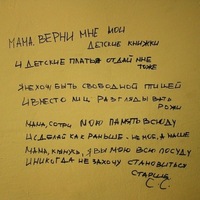 МАМА, ВЕРНИ МНЕ МОИ
ДЕТСКИЕ КНИЖКИ
И ДЕТСКИЕ ПЛАТЬЯ ОТДАЙ МНЕ
ТОЖЕ
Я НЕ ХОЧУ БЫТЬ СВОБОДНОЙ ПТИЦЕЙ
И ВМЕСТО ЛИЦ РАЗГЛЯДЫВАТЬ
РОЖИ
МАМА, СОТРИ МОЮ ПАМЯТЬ ВСЮДУ
И СДЕЛАЙ КАК РАНЬШЕ - НЕ МОЕ, А НАШЕ
МАМА, КЛЯНУСЬ, Я ВЫМОЮ ВСЮ ПОСУДУ
И НИКОГДА НЕ ЗАХОЧУ СТАНОВИТЬСЯ
СТАРШЕ
С. С.